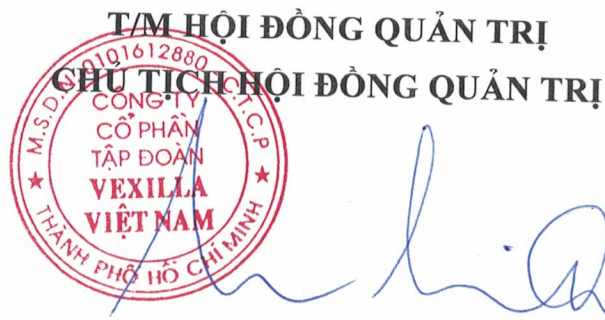 T/M HỘI ĐỒNG QUẢN TRỊ
CHỦ TỊCH HỘI ĐỒNG QUẢN TRỊ
M.S.D.N: 0101612880 - C.T.C.P
CÔNG TY
CỔ PHẦN
TẬP ĐOÀN
VEXILLA
VIỆT NAM
THÀNH PHỐ HỒ CHÍ MINH